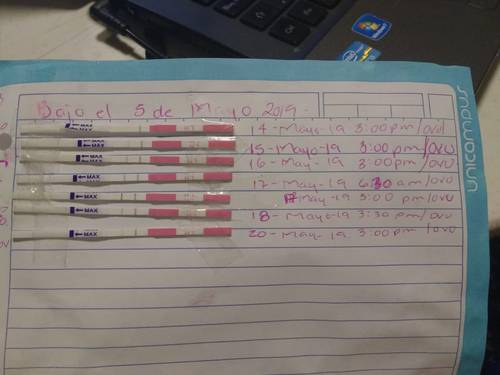 Bajo el 5 de Mayo 2019.
14-Mayo-19 3:00 pm/ovu
15-Mayo-19 3:00 pm/ovu
16-May-19 3:00 pm/ovu
17-May-19 6:30 am/ovu
17 May-19 5:00 pm/ovu
18-Mayo-19 3:30 pm/ovu
20-May-19 3:00 pm/ovu
←MAX
←MAX
←MAX
←MAX
←MAX
←MAX
←MAX
unicampus